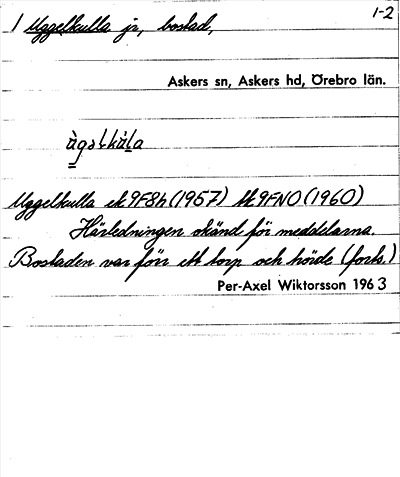 1 Uggelkulla jr, bostad, 1-2
Askers sn, Askers hd, Örebro län.
ùgəlkùla
Uggelkulla ek 9F8h (1957) tk 9FNO (1960)
Härledningen okänd för meddelarna.
Bostaden var förr ett torp och hörde (forts.)
Per-Axel Wiktorsson 1963